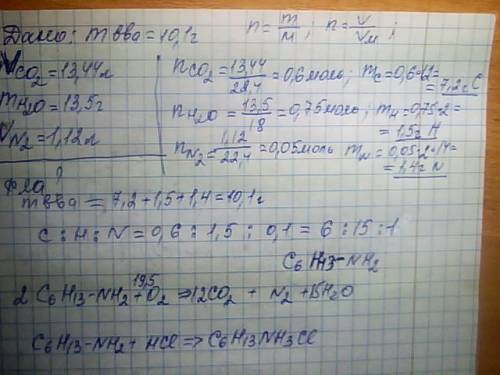 Дано: m вва = 10,1г
n = m/M ; n = V/Vм ;
VCO2 = 13,44л
nCO2 = 13,44/22,4 = 0,6 моль; mC = 0,6·12 = = 7,2г C
mH2O = 13,5г
nH2O = 13,5/18 = 0,75 моль; mH = 0,75·2 = = 1,5г H
VN2 = 1,12л
nN2 = 1,12/22,4 = 0,05 моль mN = 0,05·2·14 = = 1,4г N
ф-ла ?
m вва = 7,2 + 1,5 + 1,4 = 10,1г
C : H : N = 0,6 : 1,5 : 0,1 = 6 : 15 : 1
C6H13-NH2
2 C6H13-NH2 + 19,5 O2 => 12CO2 + N2 + 15H2O
C6H13-NH2 + HCl => C6H13NH3Cl